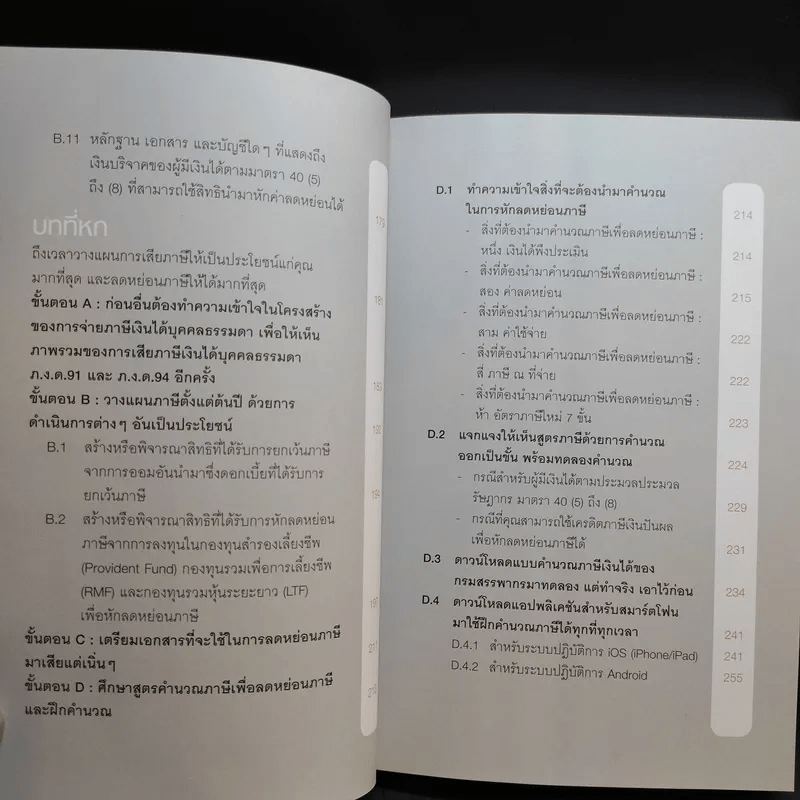 B.11 หลักฐาน เอกสาร และบัญชีใดๆ ที่แสดงถึง
เงินบริจาคของผู้มีเงินได้ตามมาตรา 40 (5)
ถึง (8) ที่สามารถใช้สิทธินำมาหักค่าลดหย่อนได้ 179
บทที่หก
ถึงเวลาวางแผนการเสียภาษีให้เป็นประโยชน์แก่คุณ
มากที่สุด และลดหย่อนภาษีให้ได้มากที่สุด 181
ขั้นตอน A : ก่อนอื่นต้องทำความเข้าใจในโครงสร้าง
ของการจ่ายภาษีเงินได้บุคคลธรรมดา เพื่อให้เห็น
ภาพรวมของการเสียภาษีเงินได้บุคคลธรรมดา
ภ.ง.ด.91 และ ภ.ง.ด.94 อีกครั้ง 183
ขั้นตอน B : วางแผนภาษีตั้งแต่ต้นปี ด้วยการ
ดำเนินการต่างๆ อันเป็นประโยชน์
B.1 สร้างหรือพิจารณาสิทธิที่ได้รับการยกเว้นภาษี
จากการออมอันนำมาซึ่งดอกเบี้ยที่ได้รับการ
ยกเว้นภาษี 194
B.2 สร้างหรือพิจารณาสิทธิที่ได้รับการหักลดหย่อน
ภาษีจากการลงทุนในกองทุนสำรองเลี้ยงชีพ
(Provident Fund) กองทุนรวมเพื่อการเลี้ยงชีพ
(RMF) และกองทุนรวมหุ้นระยะยาว (LTF)
เพื่อหักลดหย่อนภาษี 197
ขั้นตอน C : เตรียมเอกสารที่จะใช้ในการลดหย่อนภาษี
มาเสียแต่เนิ่นๆ
ขั้นตอน D : ศึกษาสูตรคำนวณภาษีเพื่อลดหย่อนภาษี
และฝึกคำนวณ
D.1 ทำความเข้าใจสิ่งที่จะต้องนำมาคำนวณ
ในการหักลดหย่อนภาษี 214
- สิ่งที่ต้องนำมาคำนวณภาษีเพื่อลดหย่อนภาษี :
หนึ่ง เงินได้พึงประเมิน 214
- สิ่งที่ต้องนำมาคำนวณภาษีเพื่อลดหย่อนภาษี :
สอง ค่าลดหย่อน 215
- สิ่งที่ต้องนำมาคำนวณภาษีเพื่อลดหย่อนภาษี :
สาม ค่าใช้จ่าย 222
- สิ่งที่ต้องนำมาคำนวณภาษีเพื่อลดหย่อนภาษี :
สี่ ภาษี ณ ที่จ่าย 222
- สิ่งที่ต้องนำมาคำนวณภาษีเพื่อลดหย่อนภาษี :
ห้า อัตราภาษีใหม่ 7 ขั้น 223
D.2 แจกแจงให้เห็นสูตรภาษีด้วยการคำนวณ
ออกเป็นขั้น พร้อมทดลองคำนวณ 224
- กรณีสำหรับผู้มีเงินได้ตามประมวลประมวล
รัษฎากร มาตรา 40 (5) ถึง (8) 229
- กรณีที่คุณสามารถใช้เครดิตภาษีเงินปันผล
เพื่อหักลดหย่อนภาษีได้ 231
D.3 ดาวน์โหลดแบบคำนวณภาษีเงินได้ของ
กรมสรรพากรมาทดลอง แต่ทำจริง เอาไว้ก่อน 234
D.4 ดาวน์โหลดแอปพลิเคชันสำหรับสมาร์ตโฟน
มาใช้ฝึกคำนวณภาษีได้ทุกที่ทุกเวลา 241
D.4.1 สำหรับระบบปฏิบัติการ iOS (iPhone/iPad) 241
D.4.2 สำหรับระบบปฏิบัติการ Android 255